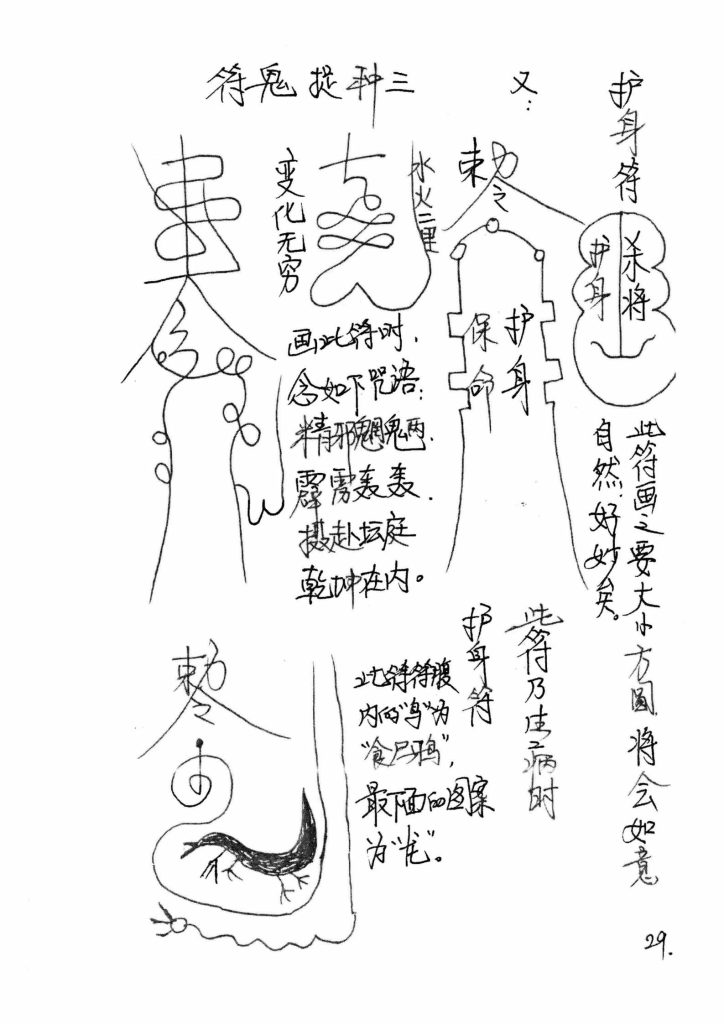 护身符
杀将
护身
此符画之要大小方圆将会如意
自然.好妙矣。
又:
敕令
护身
保命
此符乃生病时
护身符
三种捉鬼符
水火二里
变化无穷
画此符时,
念如下咒语:
精邪魍魉.
霹雳轰轰.
摄赴坛庭
乾坤在内。
敕令
此符符腹
内的“鸟”为
“食尸鸦”,
最下面的图案
为“龙”。
29.